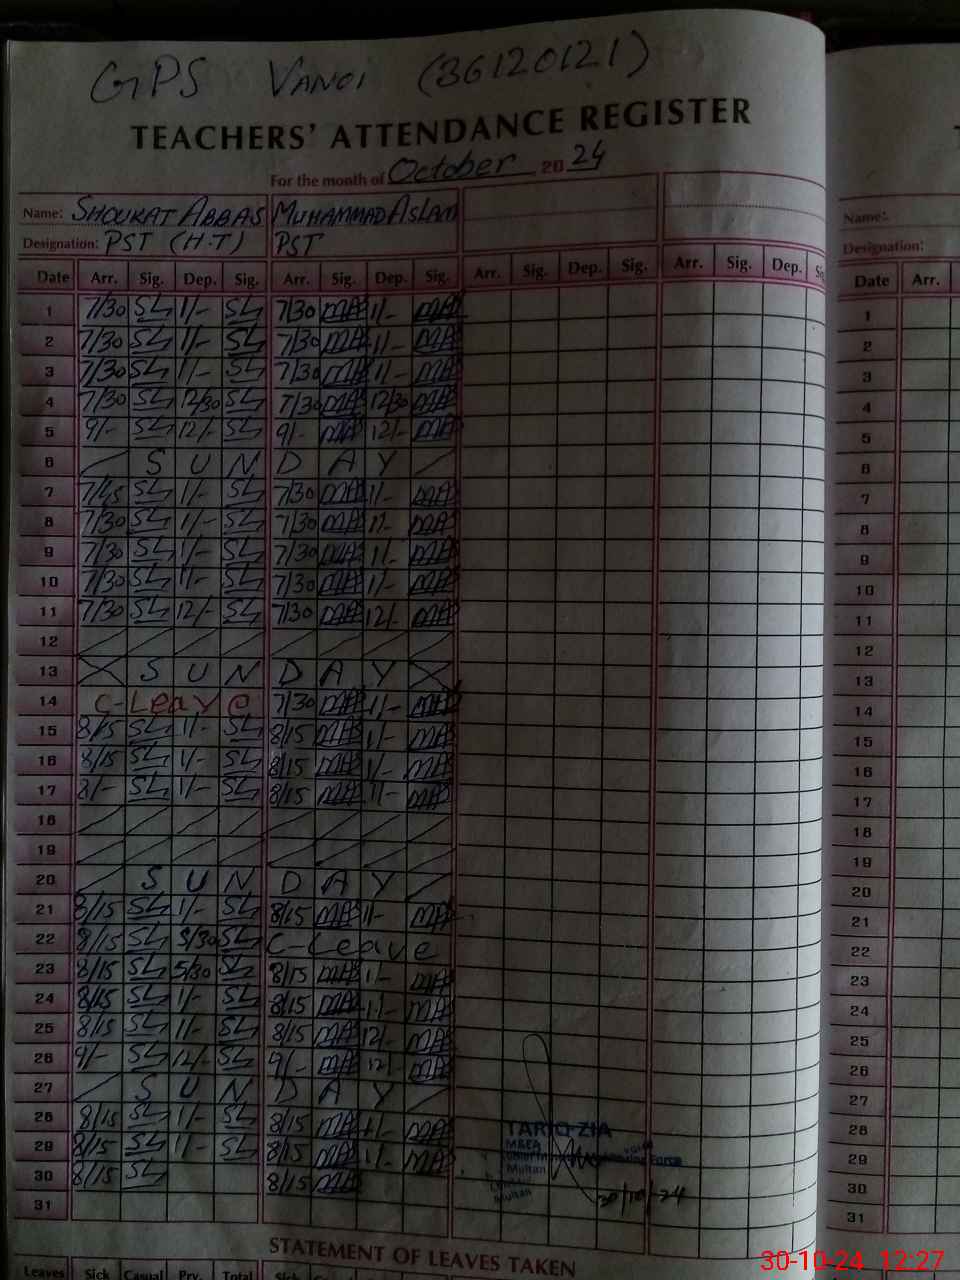 GPS VANOI (36120121)
TEACHERS' ATTENDANCE REGISTER
For the month of October 2024
Name: SHOUKAT ABBAS MUHAMMAD ASLAM
Designation: PST (H.T) PST
Date Arr. Sig. Dep. Sig. Arr. Sig. Dep. Sig. Arr. Sig. Dep. Sig. Arr. Sig. Dep.
1 7/30 SL 1/- SL 7/30 MA 1/- MA
2 7/30 SL 1/- SL 7/30 MA 1/- MA
3 7/30 SL 1/- SL 7/30 MA 1/- MA
4 7/30 SL 12/30 SL 7/30 MA 12/30 MA
5 9/- SL 12/- SL 9/- MA 12/- MA
6 S U N D A Y
7 7/45 SL 1/- SL 7/30 MA 1/- MA
8 7/30 SL 1/- SL 7/30 MA 1/- MA
9 7/30 SL 1/- SL 7/30 MA 1/- MA
10 7/30 SL 1/- SL 7/30 MA 1/- MA
11 7/30 SL 12/- SL 7/30 MA 12/- MA
12
13 S U N D A Y
14 C-Leave 7/30 MA 1/- MA
15 8/15 SL 1/- SL 8/15 MA 1/- MA
16 8/15 SL 1/- SL 8/15 MA 1/- MA
17 8/- SL 1/- SL 8/15 MA 1/- MA
18
19
20 S U N D A Y
21 8/15 SL 1/- SL 8/15 MA 1/- MA
22 8/15 SL 5/30 SL C-Leave
23 8/15 SL 5/30 SL 8/15 MA 1/- MA
24 8/15 SL 1/- SL 8/15 MA 1/- MA
25 8/15 SL 1/- SL 8/15 MA 12/- MA
26 9/- SL 12/- SL 9/- MA 12/- MA
27 S U N D A Y
28 8/15 SL 1/- SL 8/15 MA 1/- MA
29 8/15 SL 1/- SL 8/15 MA 1/- MA
30 8/15 SL 8/15 MA
31
TARIQ ZIA
M&EA
Force
Multan
Multan
30/10/24
STATEMENT OF LEAVES TAKEN
Leaves Sick Casual Prv. Total Sick
Name:
Designation:
Date Arr.
1
2
3
4
5
6
7
8
9
10
11
12
13
14
15
16
17
18
19
20
21
22
23
24
25
26
27
28
29
30
31
30-10-24 12:27